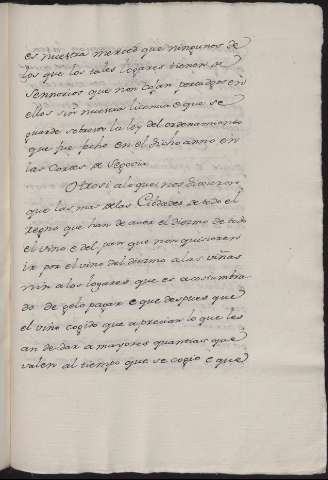 es nuestra merced que ningunos de
los que los tales logares tienen de
Sennorios que non dejan pechadgos en
ellos sin nuestra licencia e que se
guarde sobresto la ley del ordenamiento
que fue fecho en el dicho anno en
las Cortes de Segovia.
Otrosi alo que nos dixeron
que las mas delas Cibdades de todo el
regno que han de auer el diezmo de todo
el vino e del pan que non quisieren
ir por el vino del diezmo alas viñas
nin alos logares que es acostumbra
do de gelo pagar e que despues que
el viño cogido que aprecian lo que les
an de dar a mayores quantias que
valen al tiempo que se cogio e que